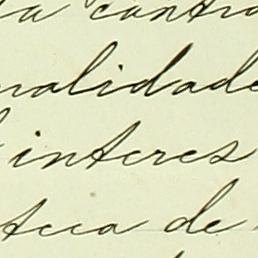 la contra
nalidade
interes
teca de